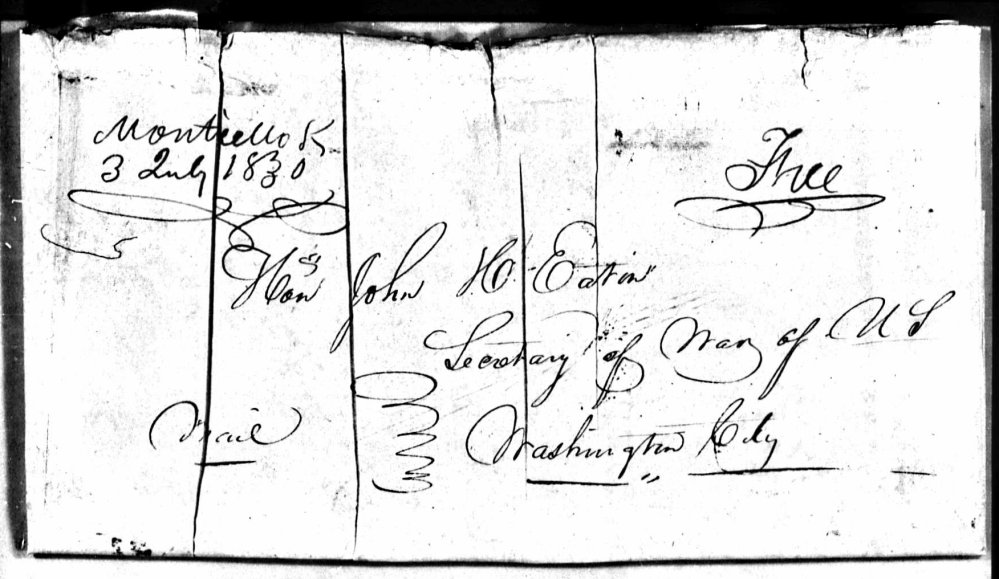 Monticello K
3 July 1830
Free
Hon John H Eaton
Secretary of War of US
Mail
Washington City